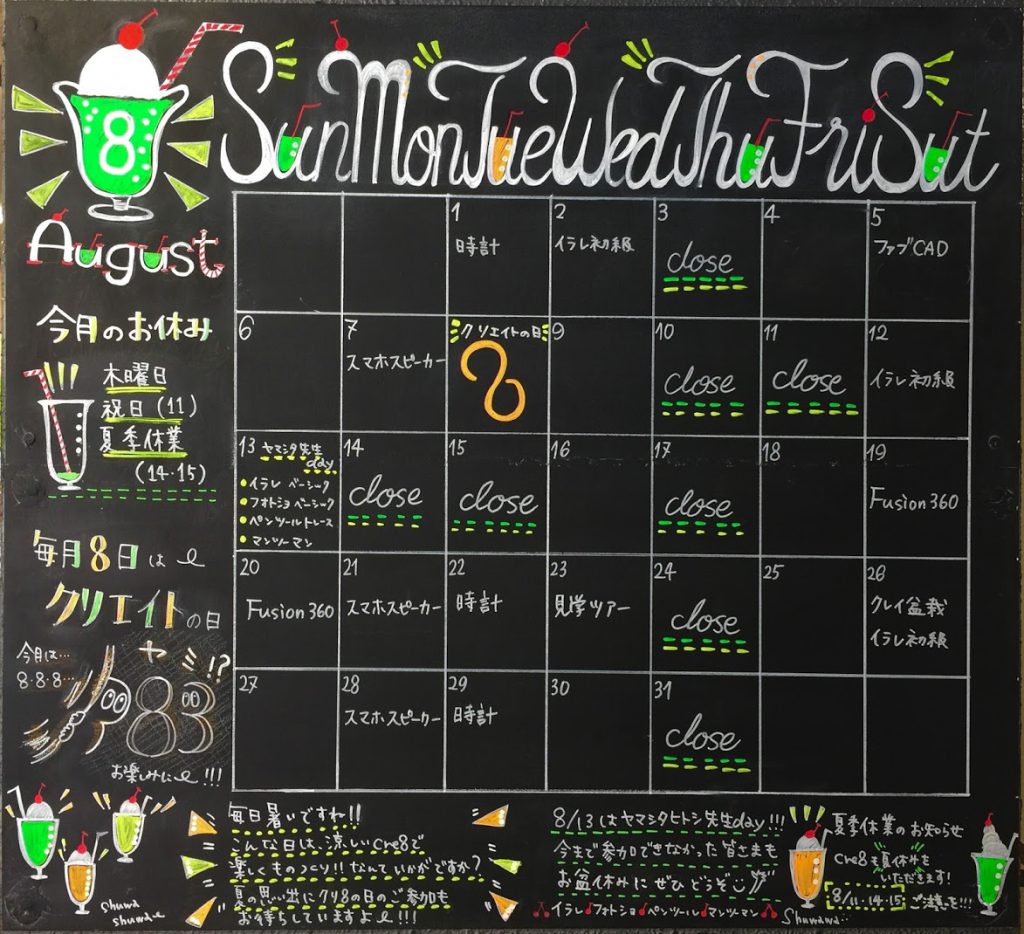 8
Sun Mon Tue Wed Thu Fri Sat
August
今月のお休み
木曜日
祝日(11)
夏季休業
(14・15)
毎月8日は
クリエイトの日
今月は…
8・8・8…
ヤ
!?
83
お楽しみに!!!
1
時計
2
イラレ初級
3
close
4
5
ファブCAD
6
7
スマホスピーカー
クリエイトの日
8
9
10
close
11
close
12
イラレ初級
13 ヤマシタ先生
day
•イラレ ベーシック
•フォトショ ベーシック
•ペンツールトレース
•マンツーマン
14
close
15
close
16
17
close
18
19
Fusion360
20
Fusion360
21
スマホスピーカー
22
時計
23
見学ツアー
24
close
25
26
クレイ盆栽
イラレ初級
27
28
スマホスピーカー
29
時計
30
31
close
shuwa
shuwa
毎日暑いですね!!
こんな日は、涼しいcre8で
楽しくものつくり!!なんていかがですか?
夏の思い出にクリ8の日のご参加も
お待ちしていますよ!!!
8/13はヤマシタヒトシ先生day!!!
今まで参加できなかった皆さまも
お盆休みにぜひどうぞ
イラレ♪フォトショ♪ペンツール♪マンツーマン
Shuwawa
夏季休業のお知らせ
cre8も夏休みを
いただきます!
8/11・14・15 ご注意を!!!